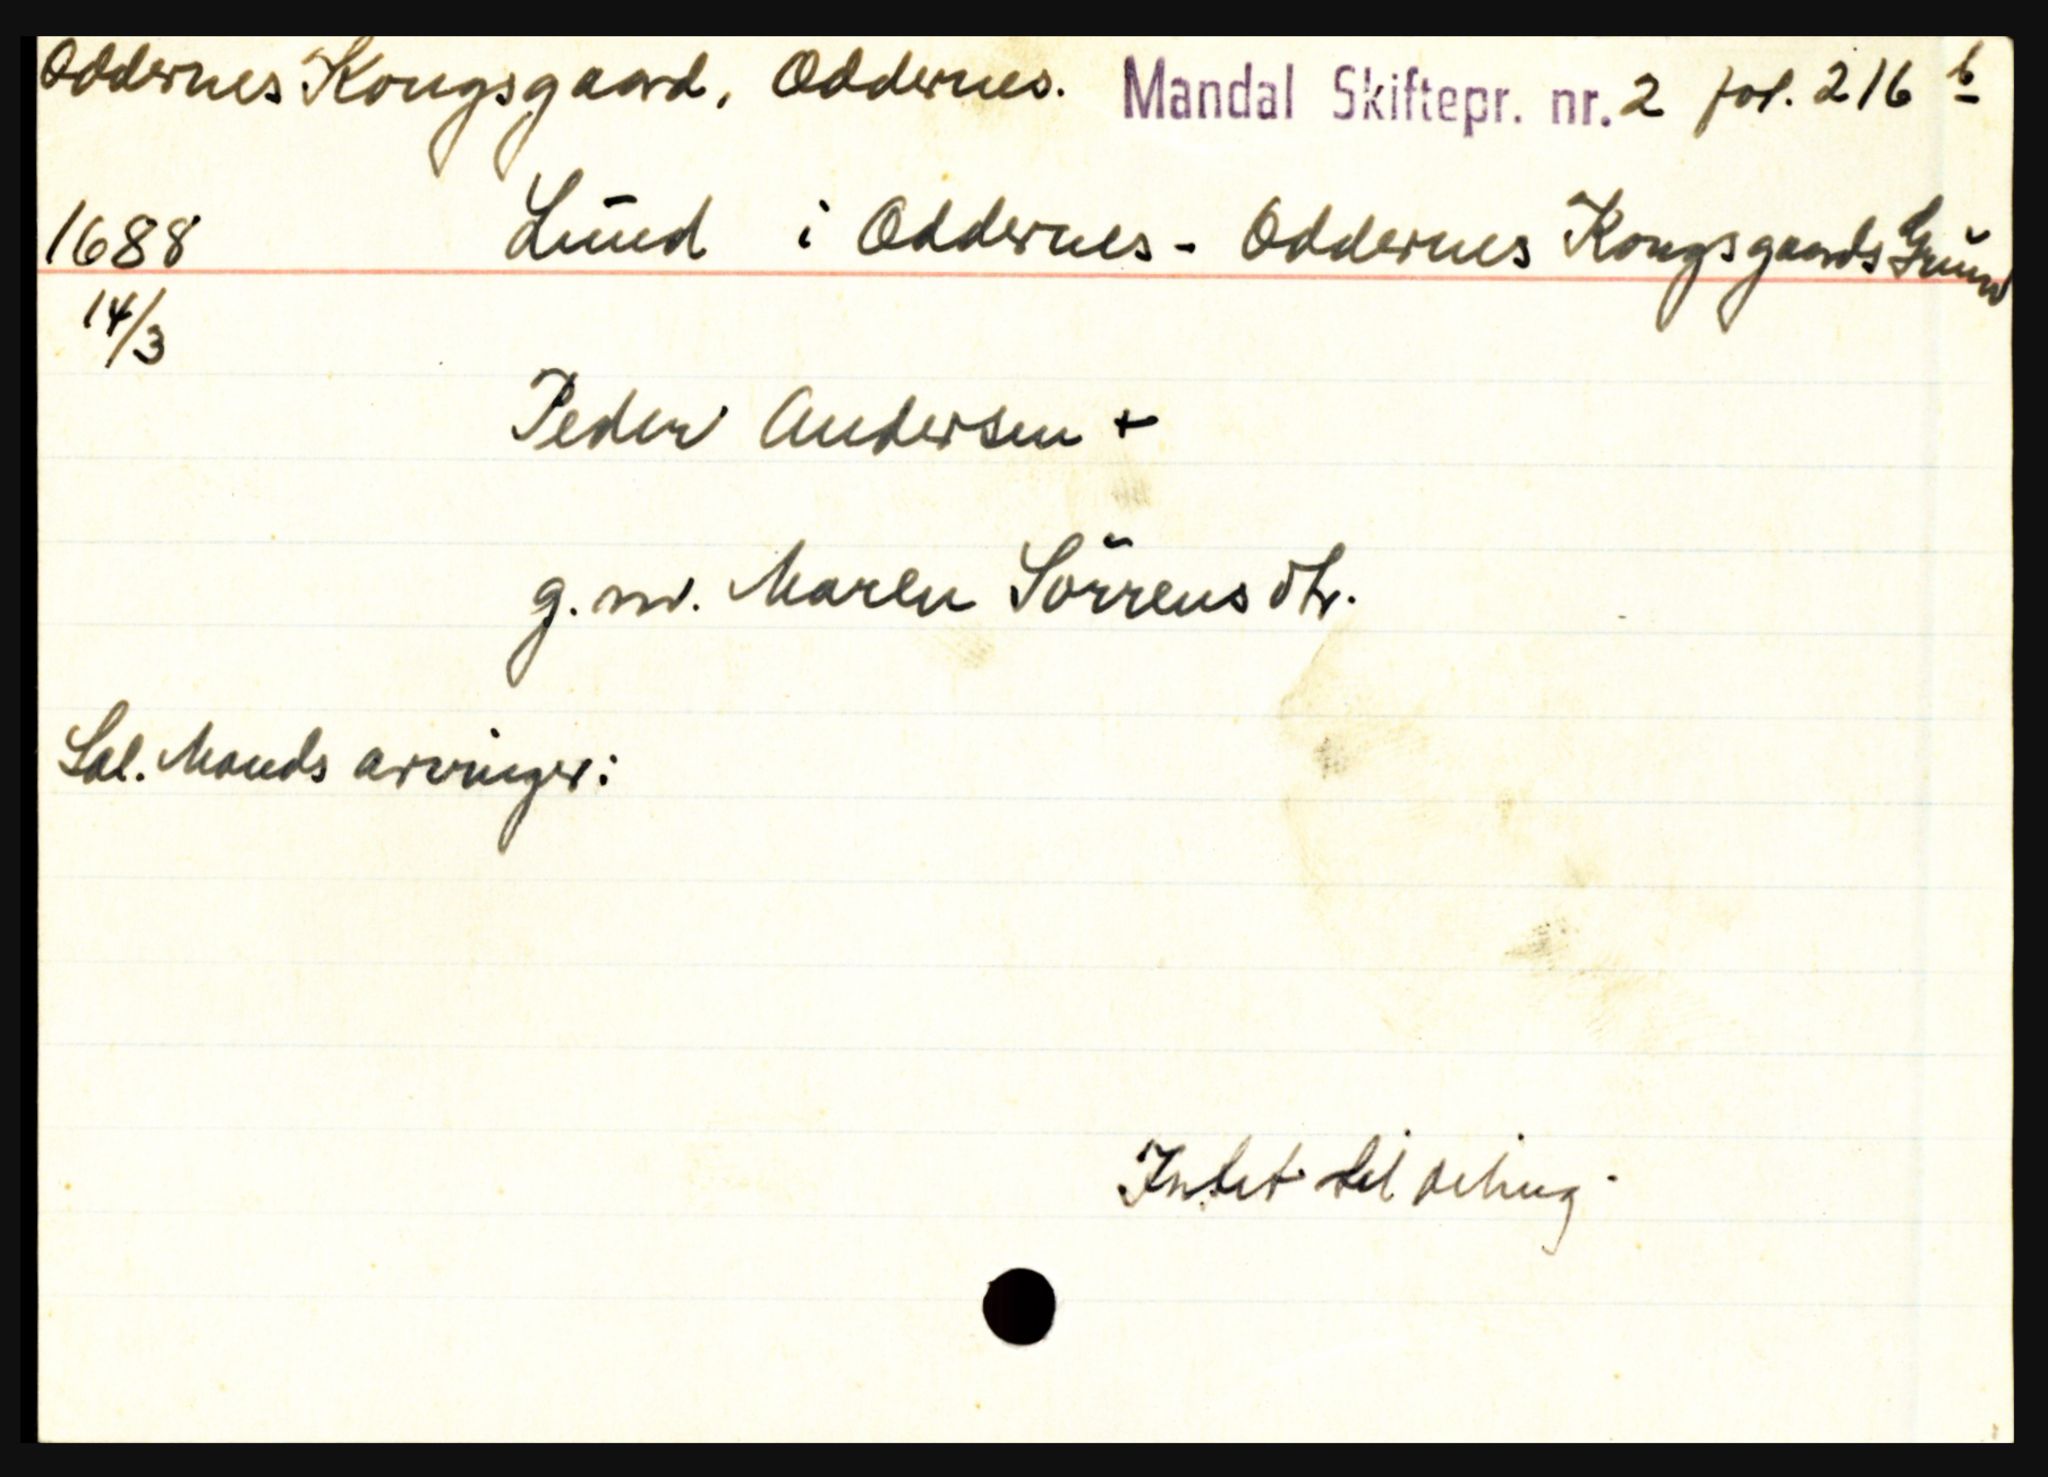 Oddernes Kongsgaard, Oddernes. Mandal Skiftepr. nr. 2 fol. 216 b
1688 Lund i Oddernes - Oddernes Kongsgaards Grund
14/3
Peder Andersen +
g. m. Maren Sörrensdtr.
Sal. Mands arvinger:
Intet til deling.